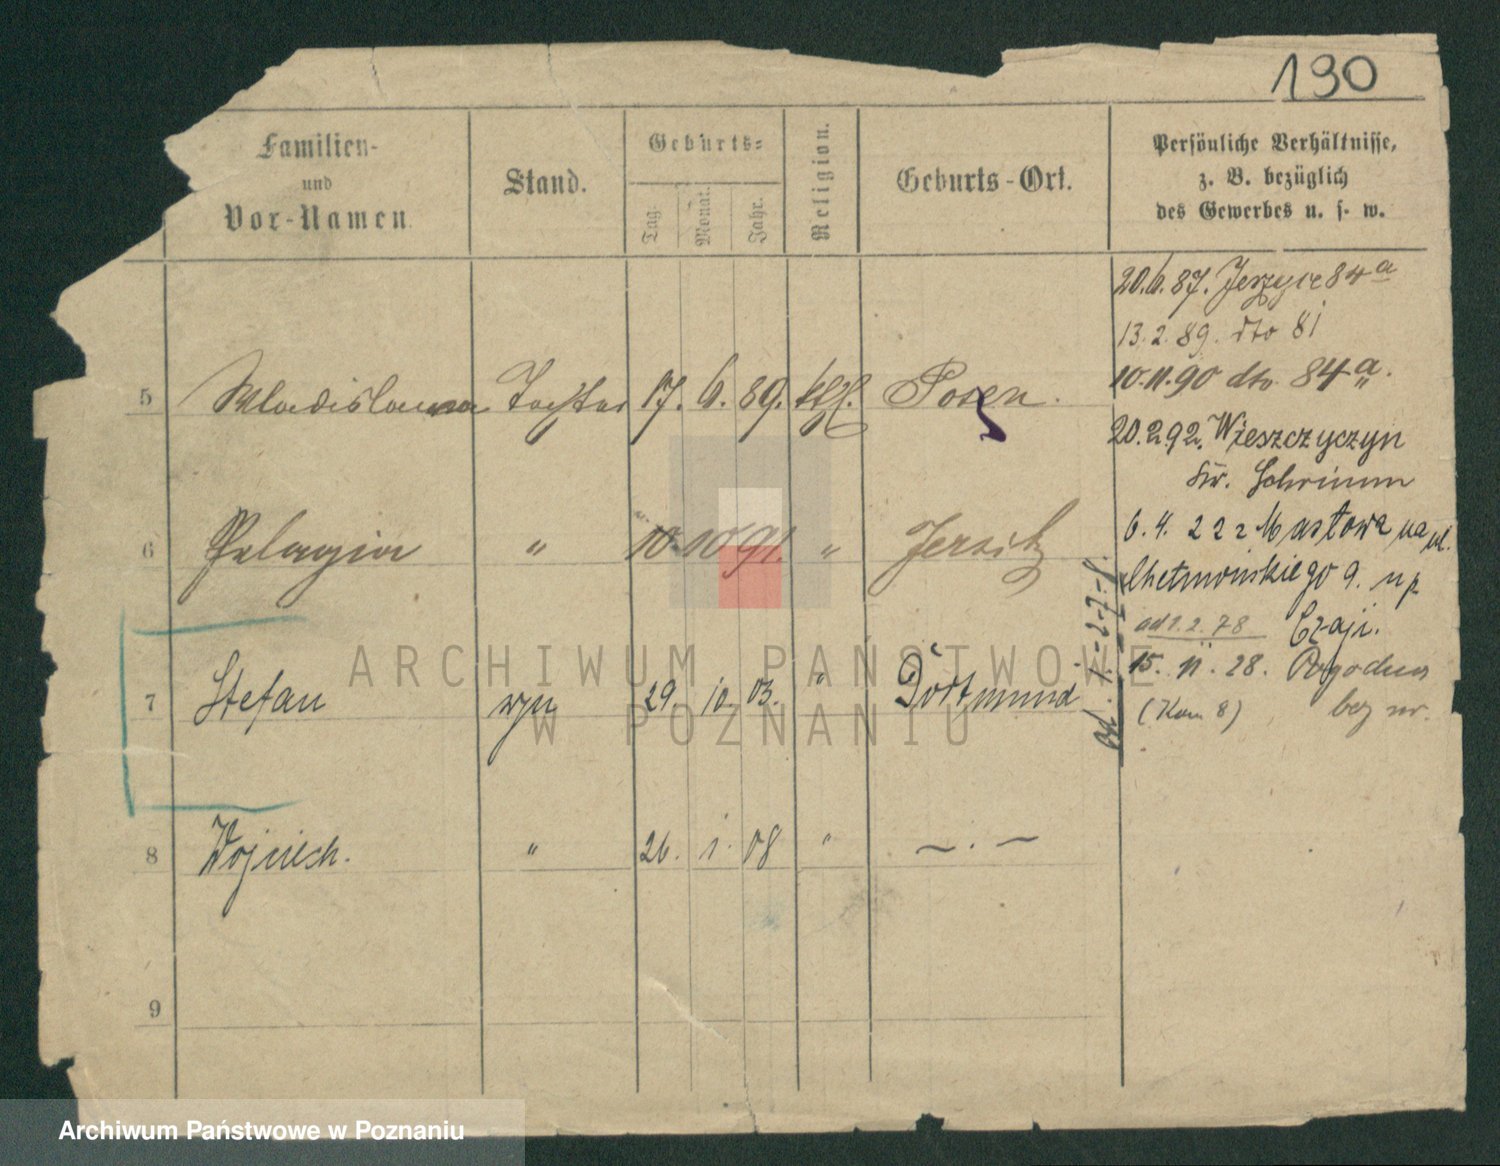 190
Familien-
und
Vor-Namen.
Stand.
Geburts-
Tag.
Monat.
Jahr.
Religion.
Geburts-Ort.
Persönliche Verhältnisse,
z. B. bezüglich
des Gewerbes u. s. w.
20.6.87. Jerzyce 84a
13.2.89. dto 81
10.11.90 dto 84a.
20.2.92. Wieszczyczyn
Kr. Schrimm
6.4.22 z Masztowa na ul.
Chełmońskiego 9. u p
Czaji.
ad 1.2.78
15.11.28. Pogodna
(Kom 8) bez nr.
5 Wladislawa Tochter 17. 6. 89. kth. Posen.
6 Pelagia " 10. 10 91. " Jersitz
7 Stefan syn 29. 10. 03. " Dortmund
8 Wojciech. " 26. 1. 08 " — . —
9
ARCHIWUM PAŃSTWOWE
W POZNANIU
Archiwum Państwowe w Poznaniu